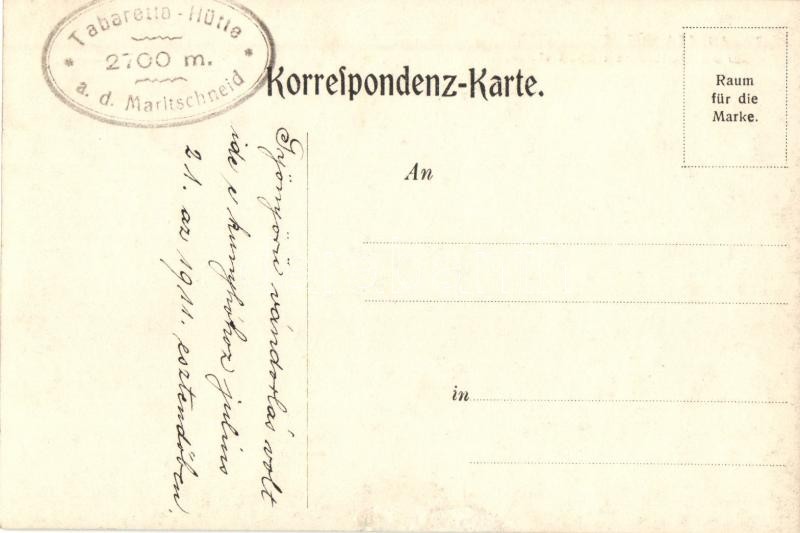 Tabaretta-Hütte
2700 m.
a. d. Marltschneid
Korreſpondenz-Karte.
Raum
für die
Marke.
An
in
Gyönyörü vándorlás volt
ide e kunyhóhoz julius
21. az 1911. esztendőben.